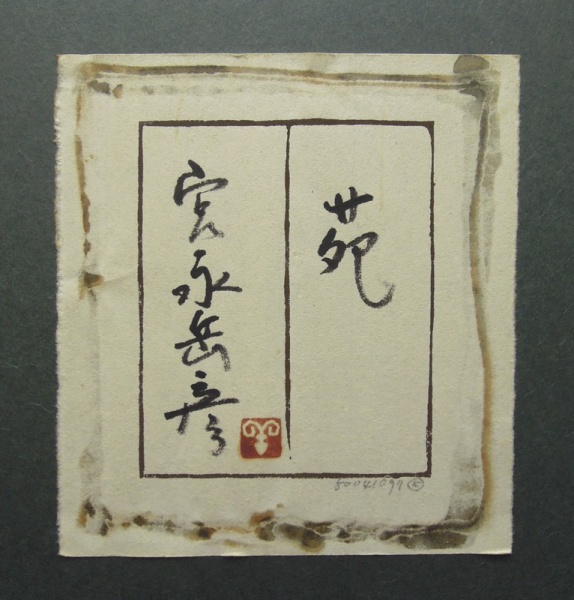 苑
宮永岳彦